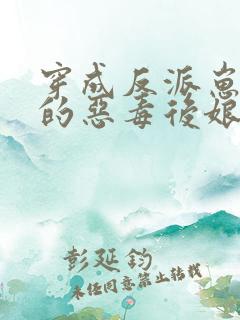 穿成反派崽
的惡毒後娘
彭延鈞
未经同意禁止转载